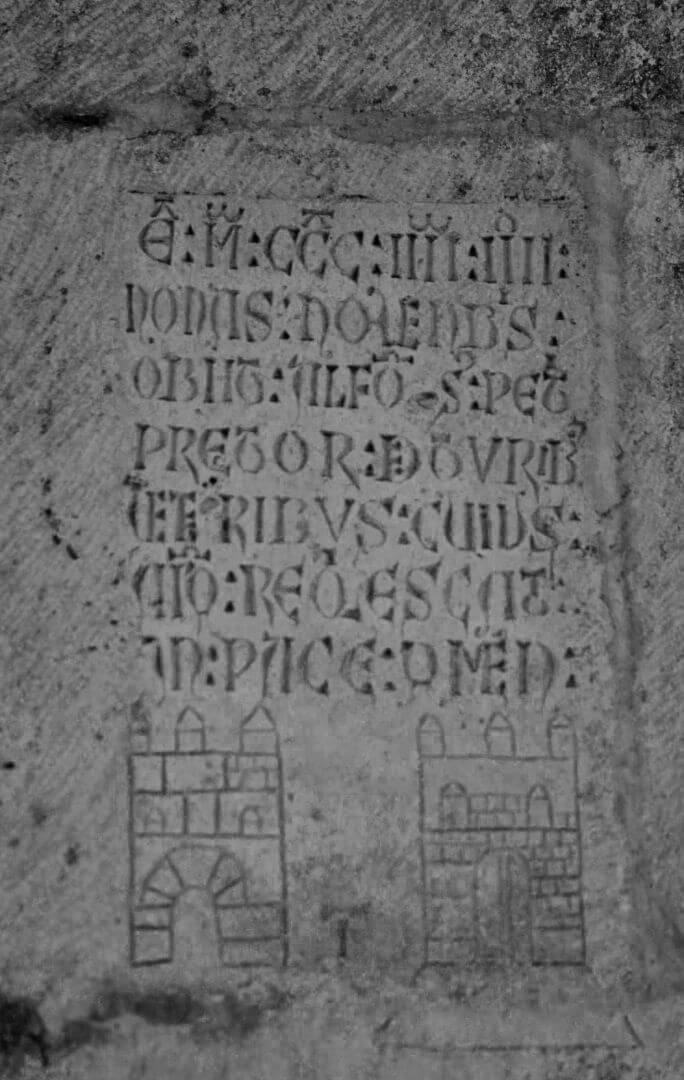 E : M : CCC : IIIIII : IIII :
NONAS : NOVENBS :
OBIIT : ALFO S : PET
PRETOR : D TVRIB
ET RIBVS : CUIUS :
AIO : REQESCAT :
IN : PACE : AMEN :